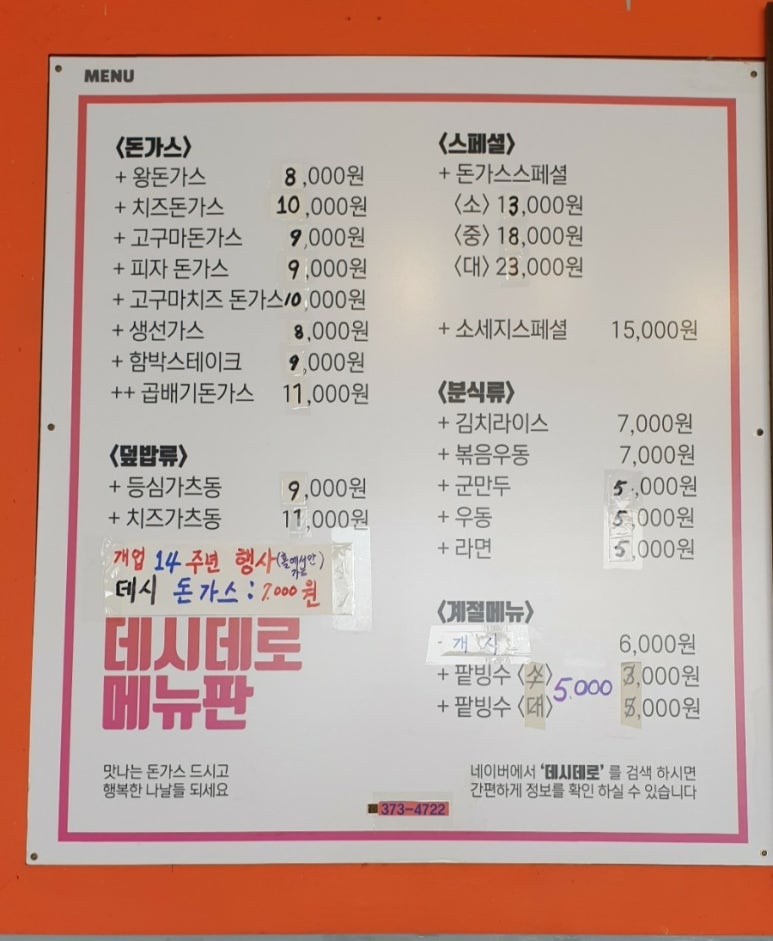 MENU
〈돈가스〉
+ 왕돈가스 8,000원
+ 치즈돈가스 10,000원
+ 고구마돈가스 9,000원
+ 피자 돈가스 9,000원
+ 고구마치즈 돈가스 10,000원
+ 생선가스 8,000원
+ 함박스테이크 9,000원
++ 곱배기돈가스 11,000원
〈덮밥류〉
+ 등심가츠동 9,000원
+ 치즈가츠동 11,000원
개업 14 주년 행사 (홀에서만 가능)
데시 돈가스 : 7.000원
데시데로
메뉴판
맛나는 돈가스 드시고
행복한 나날들 되세요
〈스페셜〉
+ 돈가스스페셜
〈소〉 13,000원
〈중〉 18,000원
〈대〉 23,000원
+ 소세지스페셜 15,000원
〈분식류〉
+ 김치라이스 7,000원
+ 볶음우동 7,000원
+ 군만두 5,000원
+ 우동 5,000원
+ 라면 5,000원
〈계절메뉴〉
개 시 6,000원
+ 팥빙수 〈소〉 3,000원
5.000
+ 팥빙수 〈대〉 5,000원
네이버에서 '데시데로' 를 검색 하시면
간편하게 정보를 확인 하실 수 있습니다
373-4722